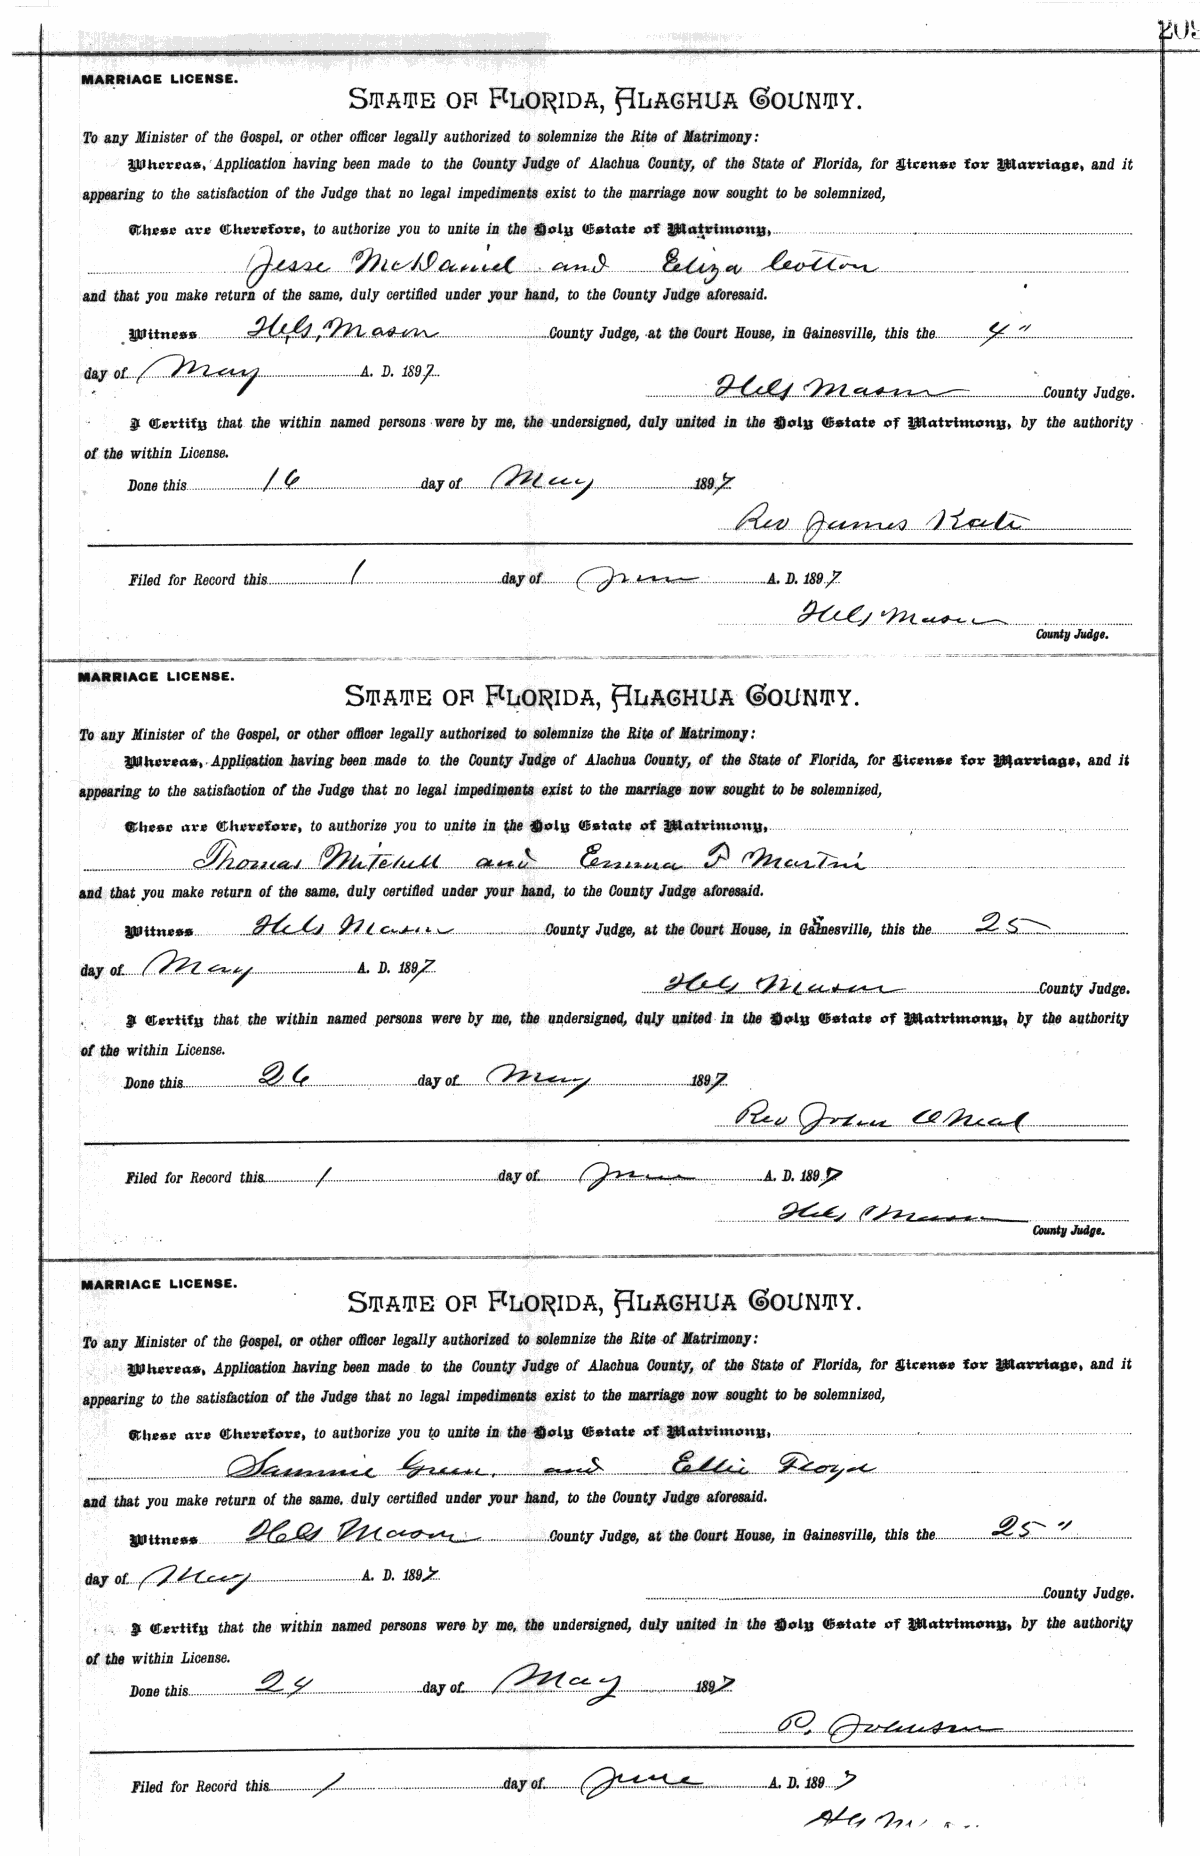 209
MARRIAGE LICENSE.
STATE OF FLORIDA, ALACHUA COUNTY.
To any Minister of the Gospel, or other officer legally authorized to solemnize the Rite of Matrimony:
Whereas, Application having been made to the County Judge of Alachua County, of the State of Florida, for License for Marriage, and it
appearing to the satisfaction of the Judge that no legal impediments exist to the marriage now sought to be solemnized,
These are Therefore, to authorize you to unite in the Holy Estate of Matrimony,
Jesse McDaniel and Eliza Cotton
and that you make return of the same, duly certified under your hand, to the County Judge aforesaid.
Witness Mason County Judge, at the Court House, in Gainesville, this the 4"
day of May A. D. 1897
Mason County Judge.
I Certify that the within named persons were by me, the undersigned, duly united in the Holy Estate of Matrimony, by the authority
of the within License.
Done this 16 day of May 1897
Rev James
Filed for Record this 1 day of June A. D. 1897
Mason
County Judge.
MARRIAGE LICENSE.
STATE OF FLORIDA, ALACHUA COUNTY.
To any Minister of the Gospel, or other officer legally authorized to solemnize the Rite of Matrimony:
Whereas, Application having been made to the County Judge of Alachua County, of the State of Florida, for License for Marriage, and it
appearing to the satisfaction of the Judge that no legal impediments exist to the marriage now sought to be solemnized,
These are Therefore, to authorize you to unite in the Holy Estate of Matrimony,
Thomas Mitchell and Emma F Martin
and that you make return of the same, duly certified under your hand, to the County Judge aforesaid.
Witness Mason County Judge, at the Court House, in Gainesville, this the 25
day of May A. D. 1897
Mason County Judge.
I Certify that the within named persons were by me, the undersigned, duly united in the Holy Estate of Matrimony, by the authority
of the within License.
Done this 26 day of May 1897
Rev John O Neal
Filed for Record this 1 day of June A. D. 1897
Mason
County Judge.
MARRIAGE LICENSE.
STATE OF FLORIDA, ALACHUA COUNTY.
To any Minister of the Gospel, or other officer legally authorized to solemnize the Rite of Matrimony:
Whereas, Application having been made to the County Judge of Alachua County, of the State of Florida, for License for Marriage, and it
appearing to the satisfaction of the Judge that no legal impediments exist to the marriage now sought to be solemnized,
These are Therefore, to authorize you to unite in the Holy Estate of Matrimony,
Sammie Green, and Ellie Floyd
and that you make return of the same, duly certified under your hand, to the County Judge aforesaid.
Witness Mason County Judge, at the Court House, in Gainesville, this the 25"
day of May A. D. 1897
County Judge.
I Certify that the within named persons were by me, the undersigned, duly united in the Holy Estate of Matrimony, by the authority
of the within License.
Done this 24 day of May 1897
P. Johnson
Filed for Record this 1 day of June A. D. 1897